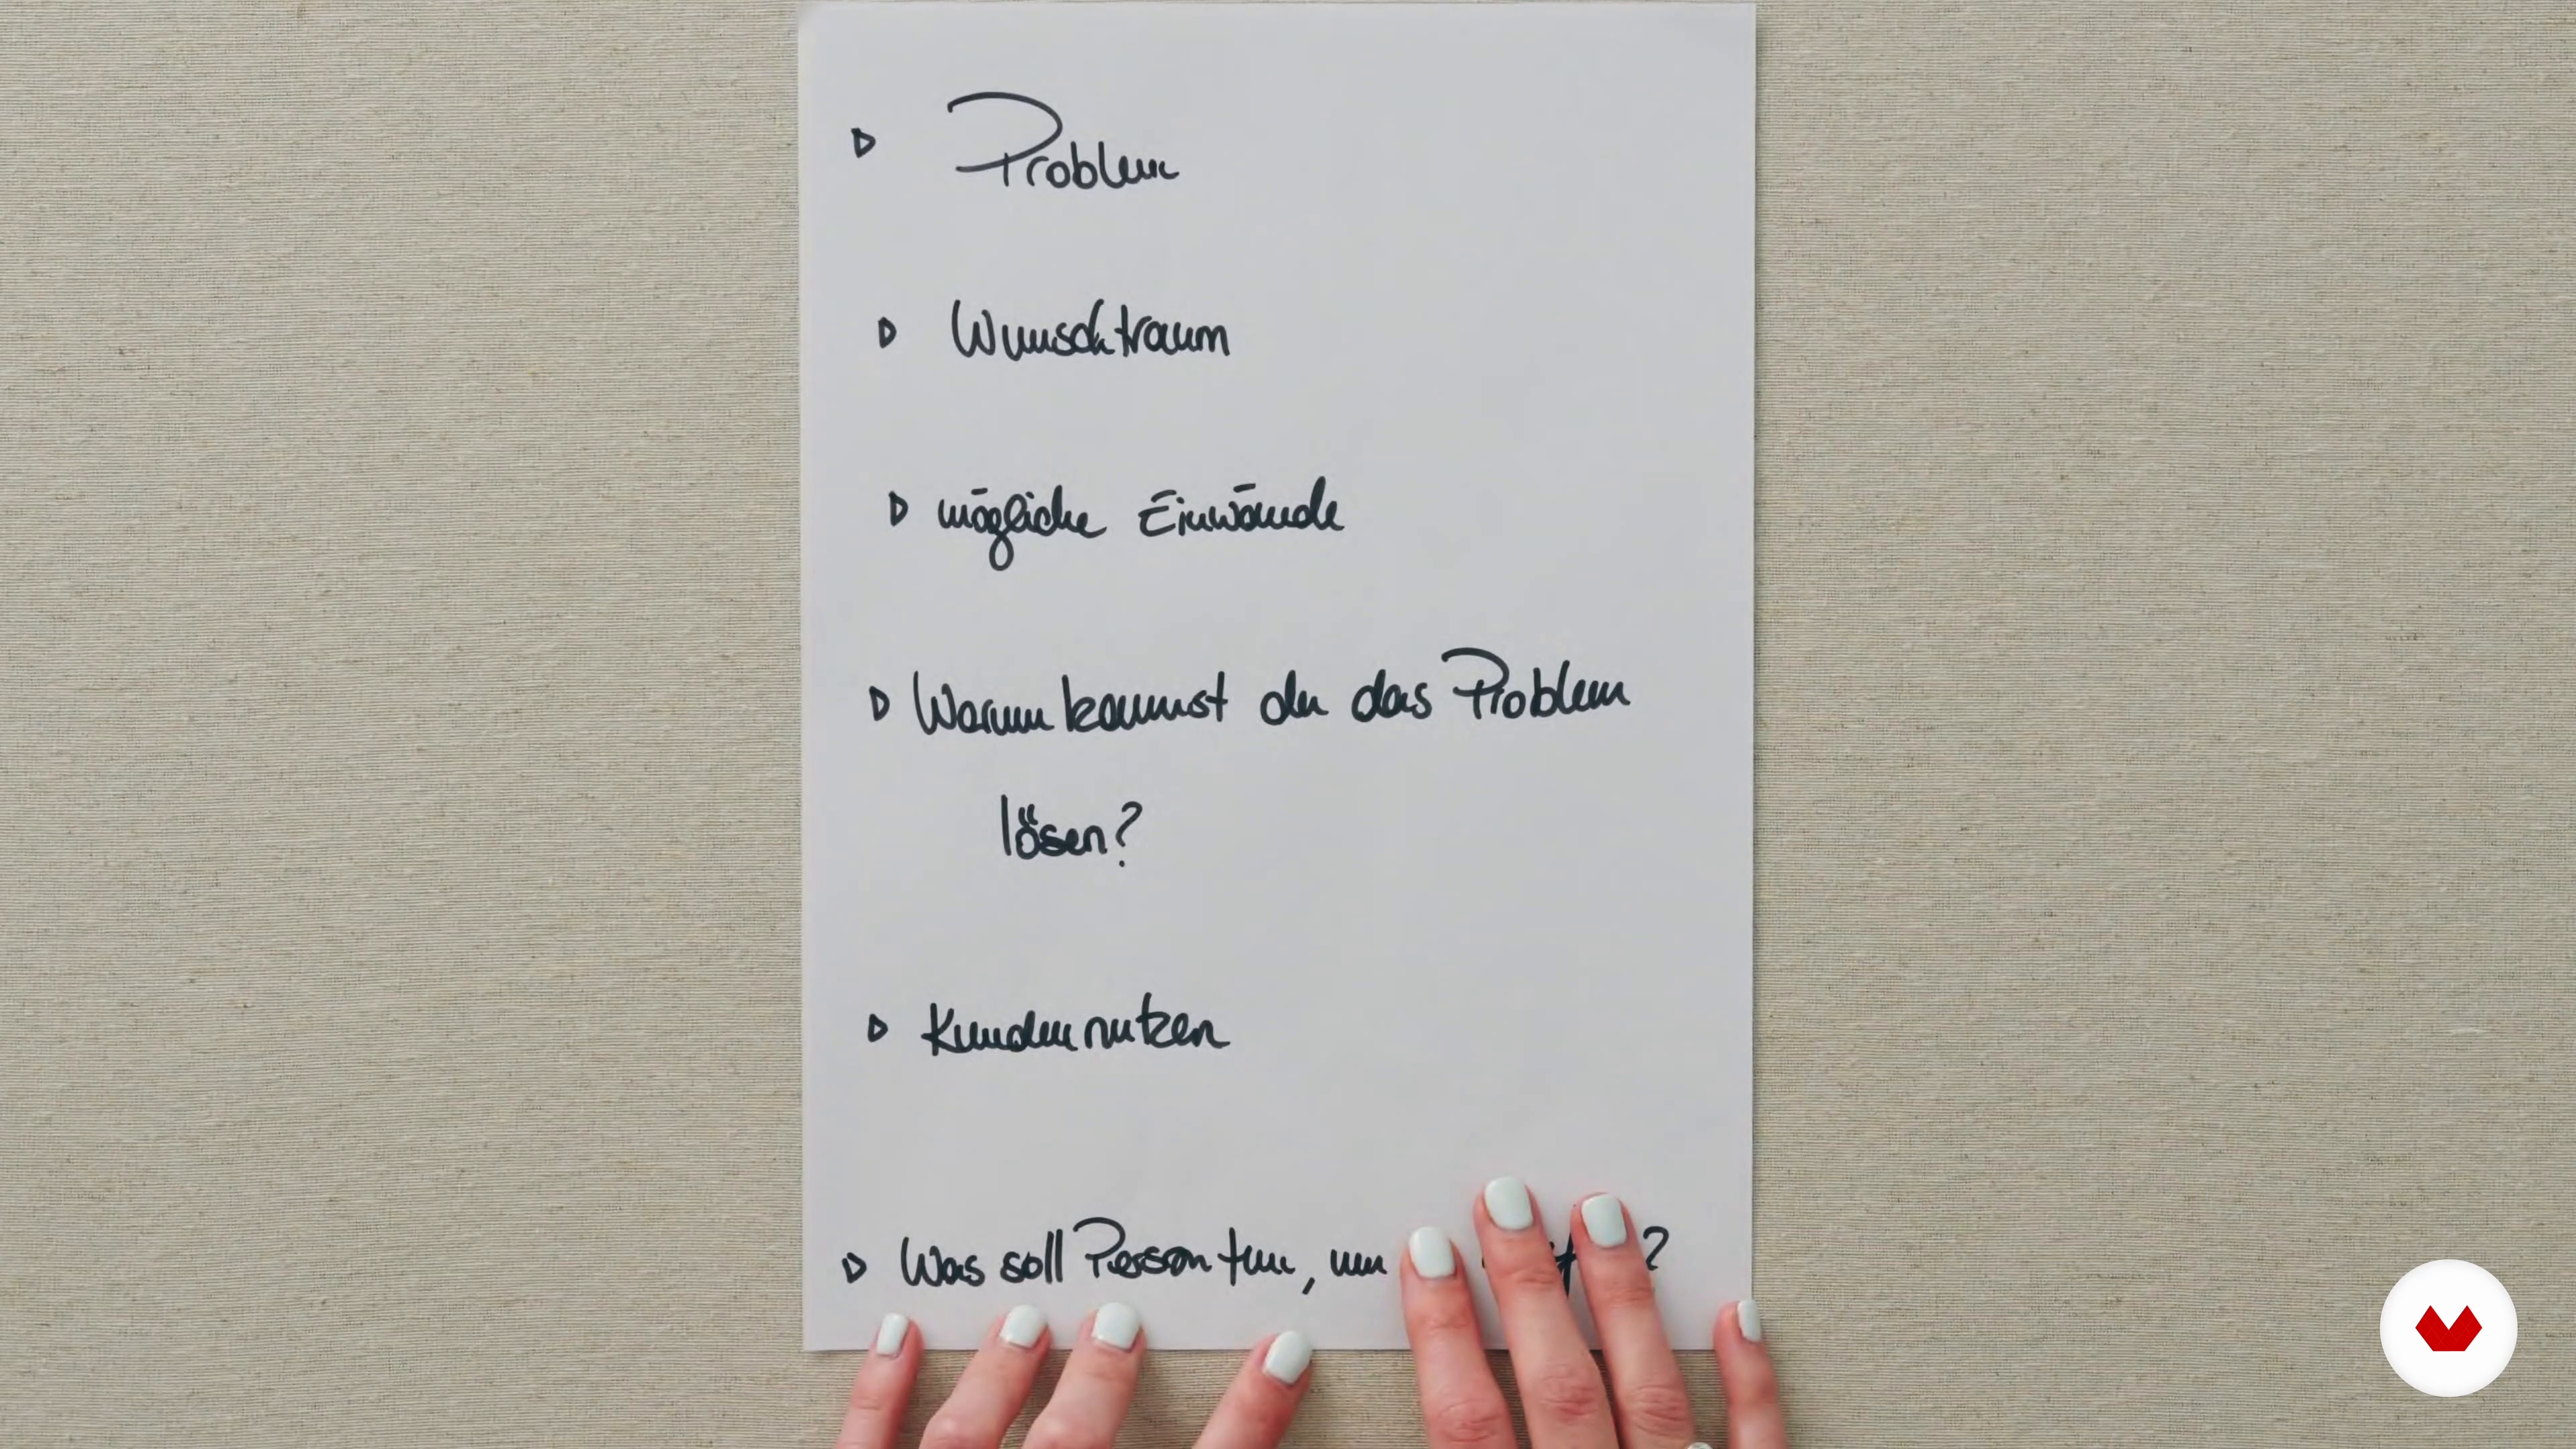 Problem
Wunschtraum
mögliche Einwände
Warum kannst du das Problem
lösen?
Kundennutzen
Was soll Person tun, um ?